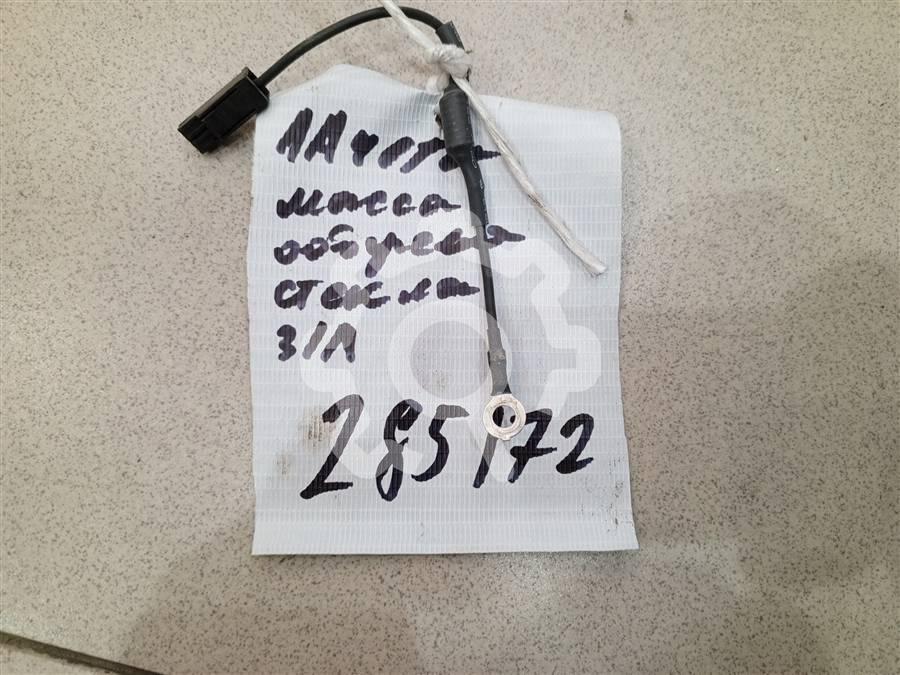 масса
обогрева
стекла
З/Л
285172